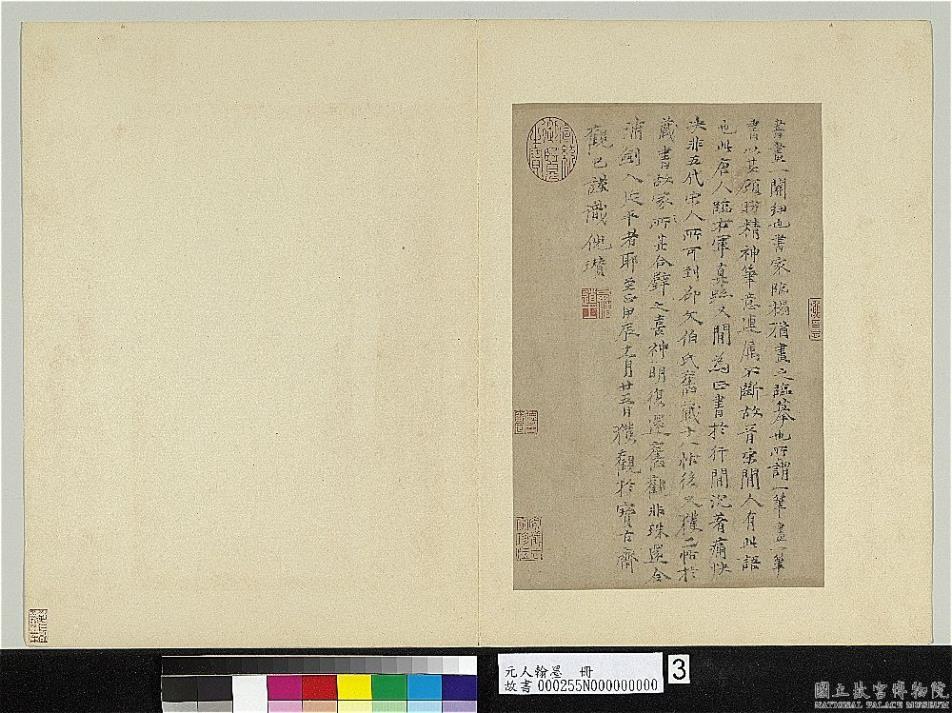 書畫一關紐也書家臨搨猶畫之臨摹也所謂一筆畫一筆
書以其顧盻精神筆意連屬不斷故晉宋間人有此語
也此唐人臨右軍真蹟又間為正書於行間沉著痛快
決非五代宋人所可到
伯氏舊藏十八帖後又獲二帖於
藏書故家所其合璧之喜神明復還舊觀非珠還合
浦劍入延平者耶至正甲辰十一月廿五日獲觀於寶古齋
觀已謾識倪瓚
元人翰墨 冊
故書 000255N000000000
3
國立故宮博物院
NATIONAL PALACE MUSEUM